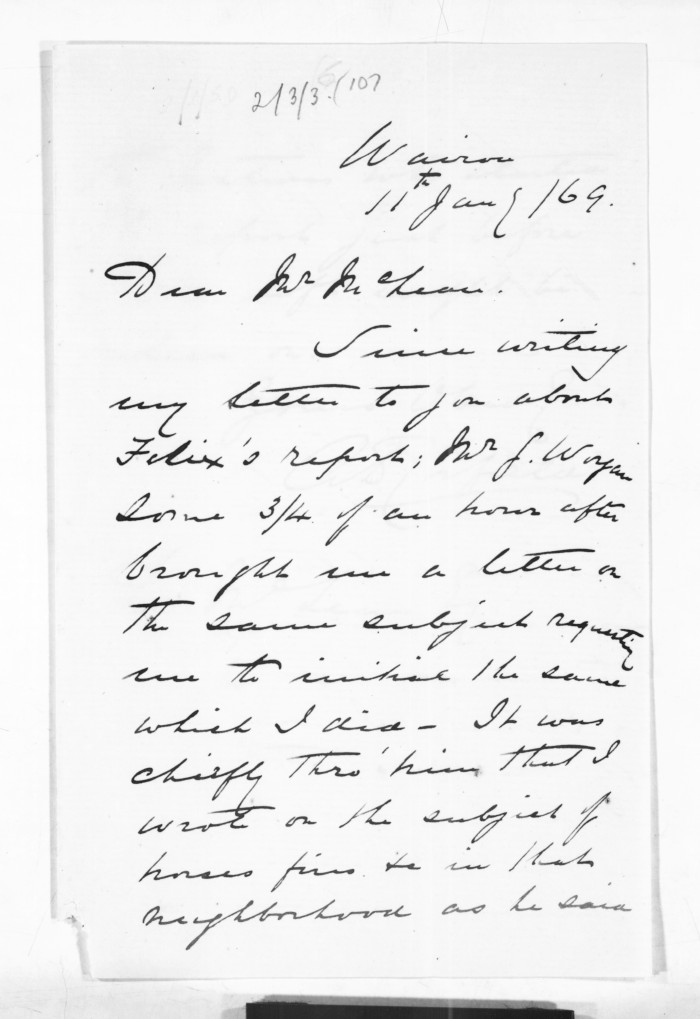 2/3/3 6/107
Wairoa
11th Jany /69.
Dear Mr McLean.
Since writing
my letter to you about
Felix's report; Mr J. Worgan
some 3/4 of an hour after
brought me a letter on
the same subject requesting
me to initial the same
which I did - It was
chiefly thro' him that I
wrote on the subject of
horses fires &c in that
neighborhood as he said